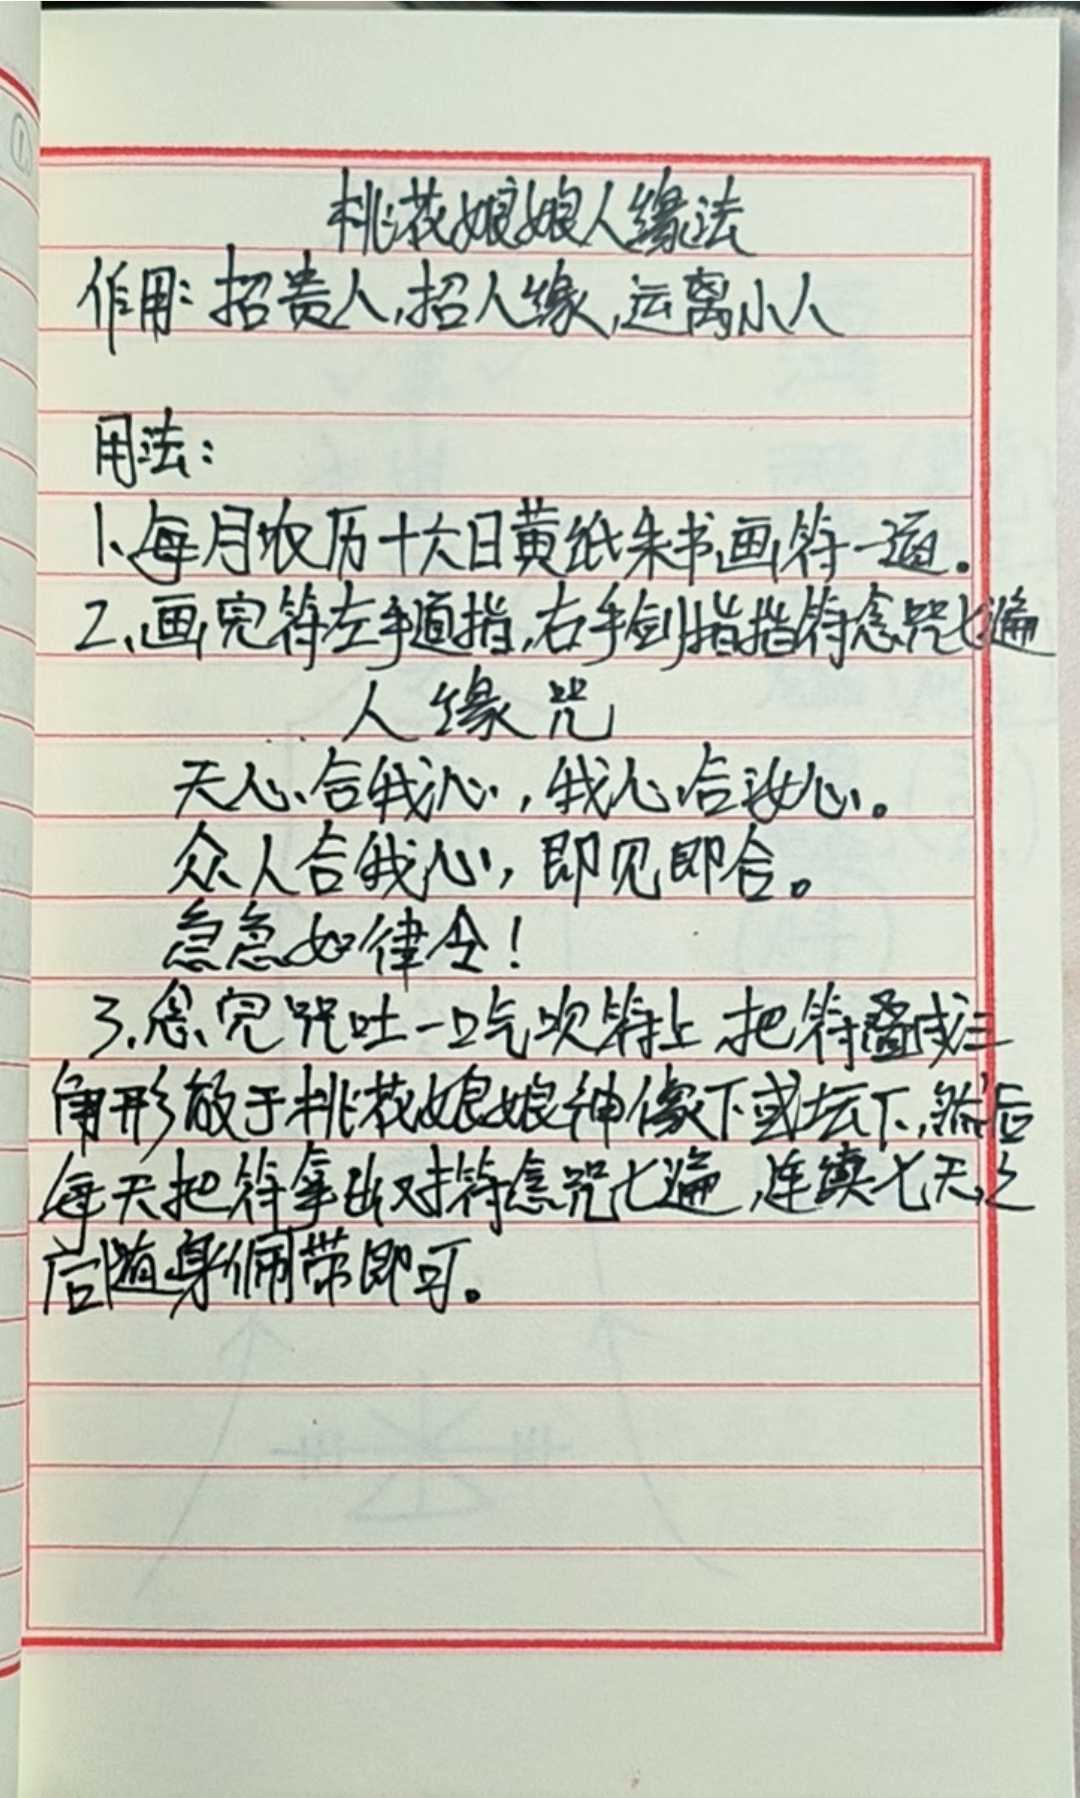 桃花娘娘人缘法
作用：招贵人，招人缘，远离小人
用法：
1、每月农历十六日黄纸朱书画符一道。
2、画完符左手道指，右手剑指指符念咒七遍
人缘咒
天心合我心，我心合汝心。
众人合我心，即见即合。
急急如律令！
3、念完咒吐一口气吹符上，把符叠成三
角形放于桃花娘娘神像下或坛下，然后
每天把符拿出对符念咒七遍，连续七天之
后随身佩带即可。